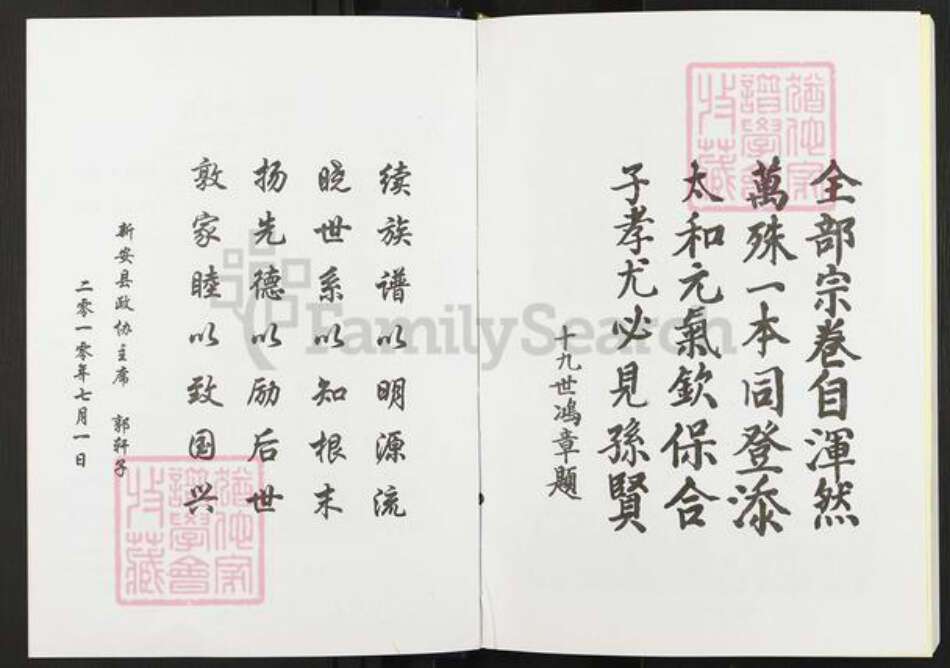 全部宗卷自渾然
萬殊一本同登添
太和元氣欽保合
子孝尤必見孫賢
十九世鴻章題
续族谱以明源流
晓世系以知根末
扬先德以励后世
敦家睦以致国兴
新安县政协主席 郭轩子
二零一零年七月一日
猶他家
譜學會
收藏
猶他家
譜學會
收藏
FamilySearch